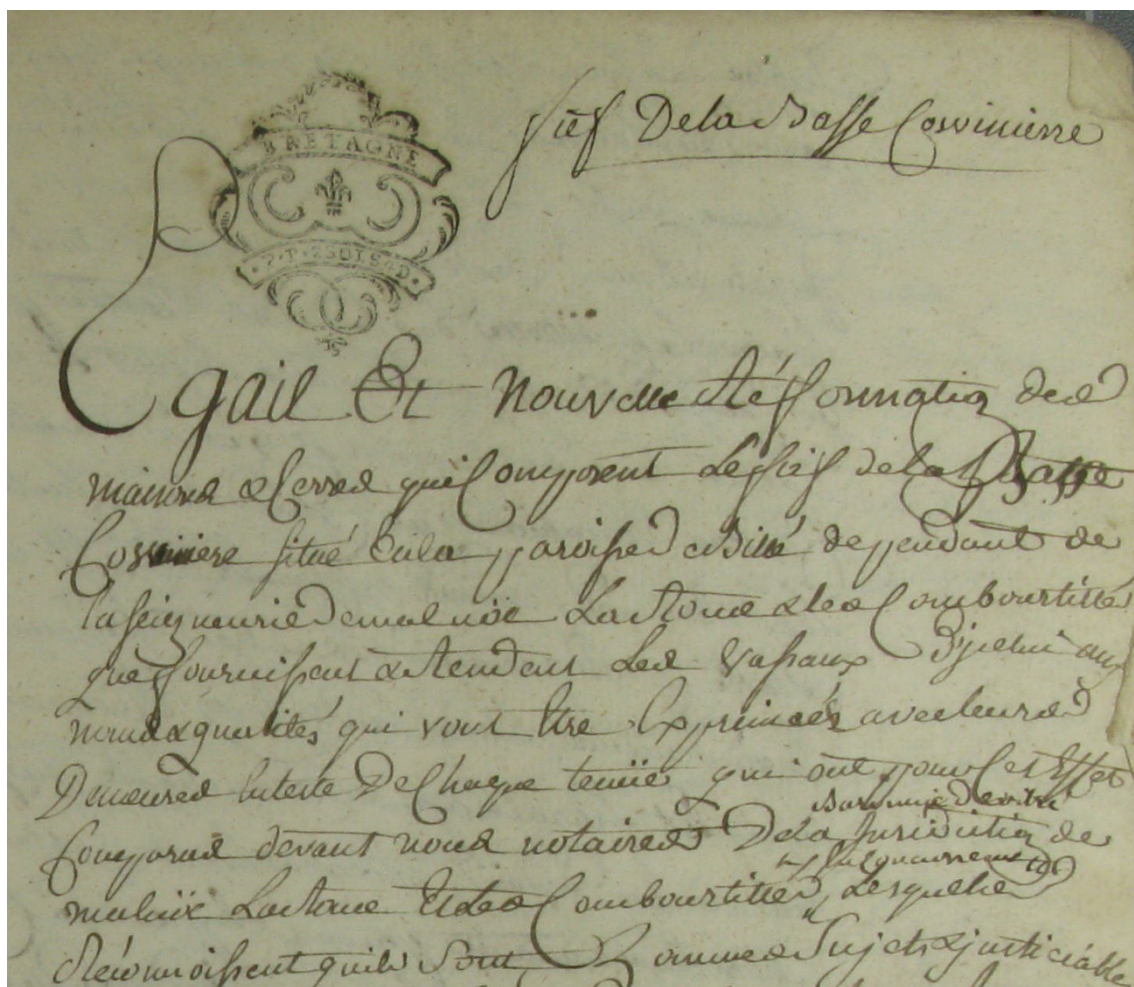 BRETAGNE
fief De la Basse Cosvinierre
Egail Et nouvelle Réfformation des
maisons & terres qui Composent Le fief de la Basse
Cosviniere situé En la paroisse de Billé dependant de
la seigneurie de malnöe La Roüe & les Combourtillé
que fournissent & Rendent Les Vassaux Djceluy aux
noms & qualités qui vont Etre Exprimées avec leurs
Demeures En teste De Chaque tenüe qui ont pour Cet Effet
Comparus devant nous notaires De la Juridiction de
Baronnie De vitré
malnöe La Roüe Et Les Combourtillé, Lesquels
Réconnoissent quils sont hommes Sujets & justiciable